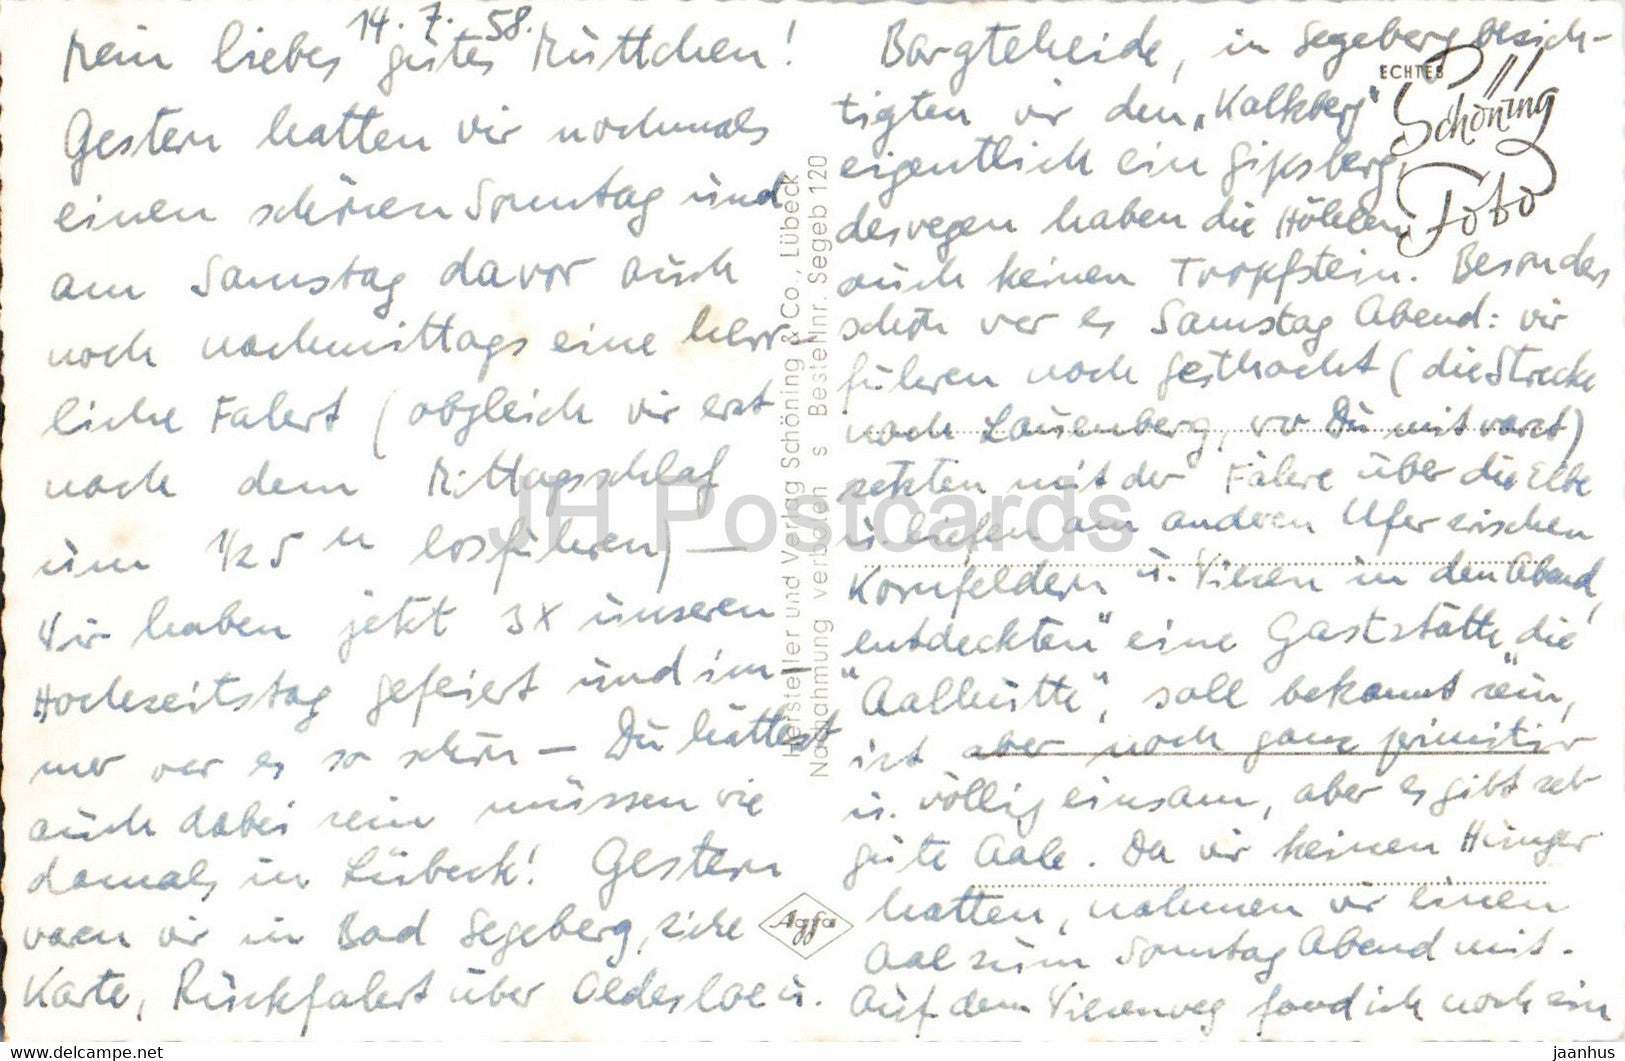 14. 7. 58.
Mein liebes gutes Muttchen!
Gestern hatten wir nochmals
einen schönen Sonntag und
am Samstag davor auch
noch nachmittags eine herr-
liche Fahrt (obgleich wir erst
nach dem Mittagsschlaf
um 1/2 5 U losfuhren) —
Wir haben jetzt 3x unseren
Hochzeitstag gefeiert und im-
mer war es so schön — Du hättest
auch dabei sein müssen wie
damals in Lübeck! Gestern
waren wir in Bad Segeberg, siehe
Karte, Rückfahrt über Oldesloe u.
Bargteheide, in Segeberg besich-
tigten wir den „Kalkberg"
eigentlich ein Gipsberg,
deswegen haben die Höhlen
auch keinen Tropfstein. Besonders
schön war es Samstag Abend: wir
fuhren nach Geesthacht (die Strecke
nach Lauenberg, wo Du mit warst)
setzten mit der Fähre über die Elbe
u. liefen am anderen Ufer zwischen
Kornfeldern u. Wiesen in den Abend,
entdeckten" eine Gaststätte, die
"Aalhütte", soll bekannt sein,
ist aber noch ganz primitiv
u. völlig einsam, aber es gibt sehr
gute Aale. Da wir keinen Hunger
hatten, nahmen wir einen
Aal zum Sonntag Abend mit.
Auf dem Wiesenweg fand ich noch ein
ECHTES
Schöning
Foto
Hersteller und Verlag Schöning & Co., Lübeck
Nachahmung verboten s Bestellnr. Segeb 120
Agfa
JH Postcards
jaanhus - www.delcampe.net